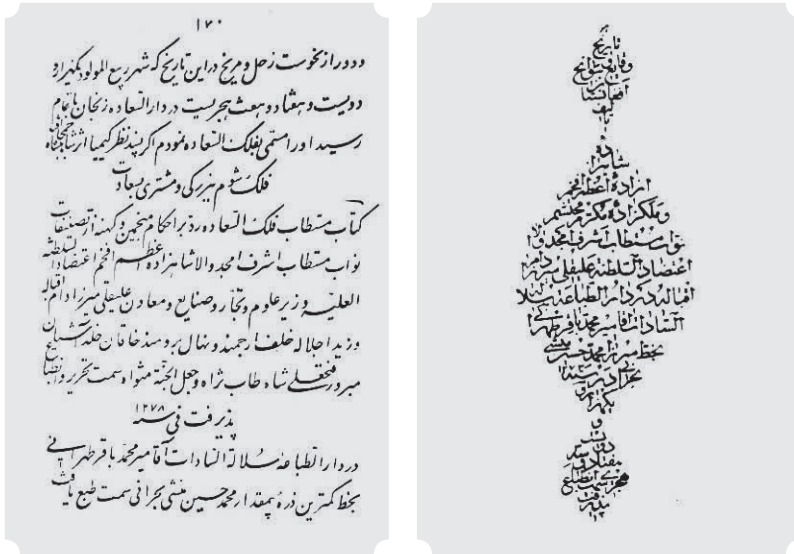 ۱۷۰
و دور از نحوست زحل و مریخ در این تاریخ که شهر ربیع المولود یکهزار و
دویست و هفتاد و هشت هجریست در دار السعاده زنجان باتمام
رسید او را مسمی بفلک السعاده نمودم اگر پسند نظر کیمیا اثر شاهنشاه
فلک شوم ببزرکی و مشتری بسعادت
کتاب مستطاب فلک السعاده رد بر احکام منجمین و کهنه از تصنیفات
نواب مستطاب اشرف امجد والا شاهزاده اعظم افخم اعتضاد السلطنه
العلیه وزیر علوم و تجار و صنایع و معادن علیقلی میرزا دام اقباله
و زید اجلاله خلف ارجمند و نهال برومند خاقان خلد آشیان
مبرور فتحعلی شاه طاب ثراه و جعل الجنة مثواه سمت تحریر و انطباع
پذیرفت فی سنه ۱۲۷۸
در دار الطباعه سلالة السادات آقا میر محمد باقر طهرانی
بخط کمترین ذره بیمقدار محمد حسین منشی بحرانی سمت طبع یافت
تاریخ
وقایع و سوانح
افغانستان
شاهزاده
آزاده اعظم افخم
و ملکزاده مکرم محتشم
نواب مستطاب اشرف امجد والا
اعتضاد السلطنه علیقلی میرزا دام
اقباله در دار الطباعه سلالة
السادات اقا میر محمد باقر طهرانی
بخط میرزا محمد حسین منشی
بحرانی در سنه
یکهزار و
دویست
و
هفتاد و سه
هجری سمت انطباع
پذیرفت